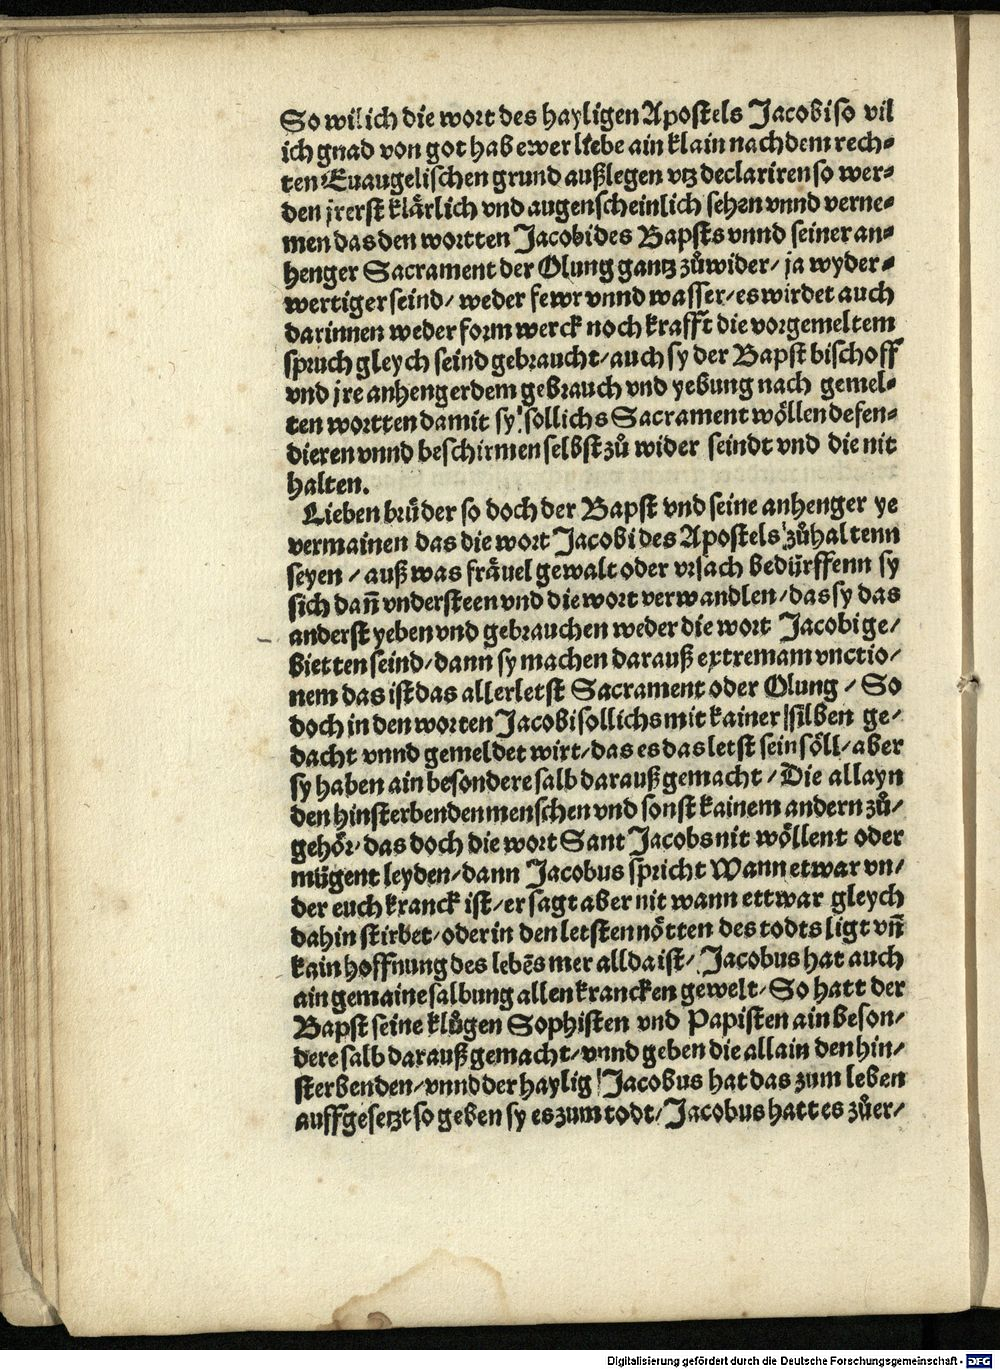 So wil ich die wort des hayligen Apostels Jacobi so vil
ich gnad von got hab ewer liebe ain klain nach dem rech-
ten Euaugelischen grund außlegen vtz declariren so wer-
den jr erst klårlich vnd augenscheinlich sehen vnnd verne-
men das den wortten Jacobi des Bapsts vnnd seiner an-
henger Sacrament der Olung gantz zůwider/ ja wyder-
wertiger seind/ weder fewr vnnd wasser/ es wirdet auch
darinnen weder form werck noch krafft die vorgemeltem
spruch gleych seind gebraucht/ auch sy der Bapst bischoff
vnd jre anhenger dem gebrauch vnd yebung nach gemel-
ten wortten damit sy sollichs Sacrament wöllen defen-
dieren vnnd beschirmen selbst zů wider seindt vnd die nit
halten.
Lieben brüder so doch der Bapst vnd seine anhenger ye
vermainen das die wort Jacobi des Apostels zůhaltenn
seyen / auß was fräuel gewalt oder vrsach bedürffenn sy
sich dañ vndersteen vnd die wort verwandlen/ das sy das
anderst yeben vnd gebrauchen weder die wort Jacobi ge/
bietten seind/ dann sy machen darauß extremam vnctio/
nem das ist das allerletst Sacrament oder Olung / So
doch in den worten Jacobi sollichs mit kainer silben ge/
dacht vnnd gemeldet wirt/ das es das letst sein söll/ aber
sy haben ain besondere salb darauß gemacht / Die allayn
den hinsterbenden menschen vnd sonst kainem andern zů/
gehör/ das doch die wort Sant Jacobs nit wöllent oder
mügent leyden/ dann Jacobus spricht Wann etwar vn/
der euch kranck ist/ er sagt aber nit wann ettwar gleych
dahin stirbet/ oder in den letsten nötten des todts ligt vñ
kain hoffnung des lebēs mer allda ist/ Jacobus hat auch
ain gemaine salbung allen krancken gewelt/ So hatt der
Bapst seine klůgen Sophisten vnd Papisten ain beson/
dere salb darauß gemacht/ vnnd geben die allain den hin/
sterbenden/ vnnd der haylig Jacobus hat das zum leben
auffgesetzt so geben sy es zum todt/ Jacobus hatt es zůer/
Digitalisierung gefördert durch die Deutsche Forschungsgemeinschaft - DFG